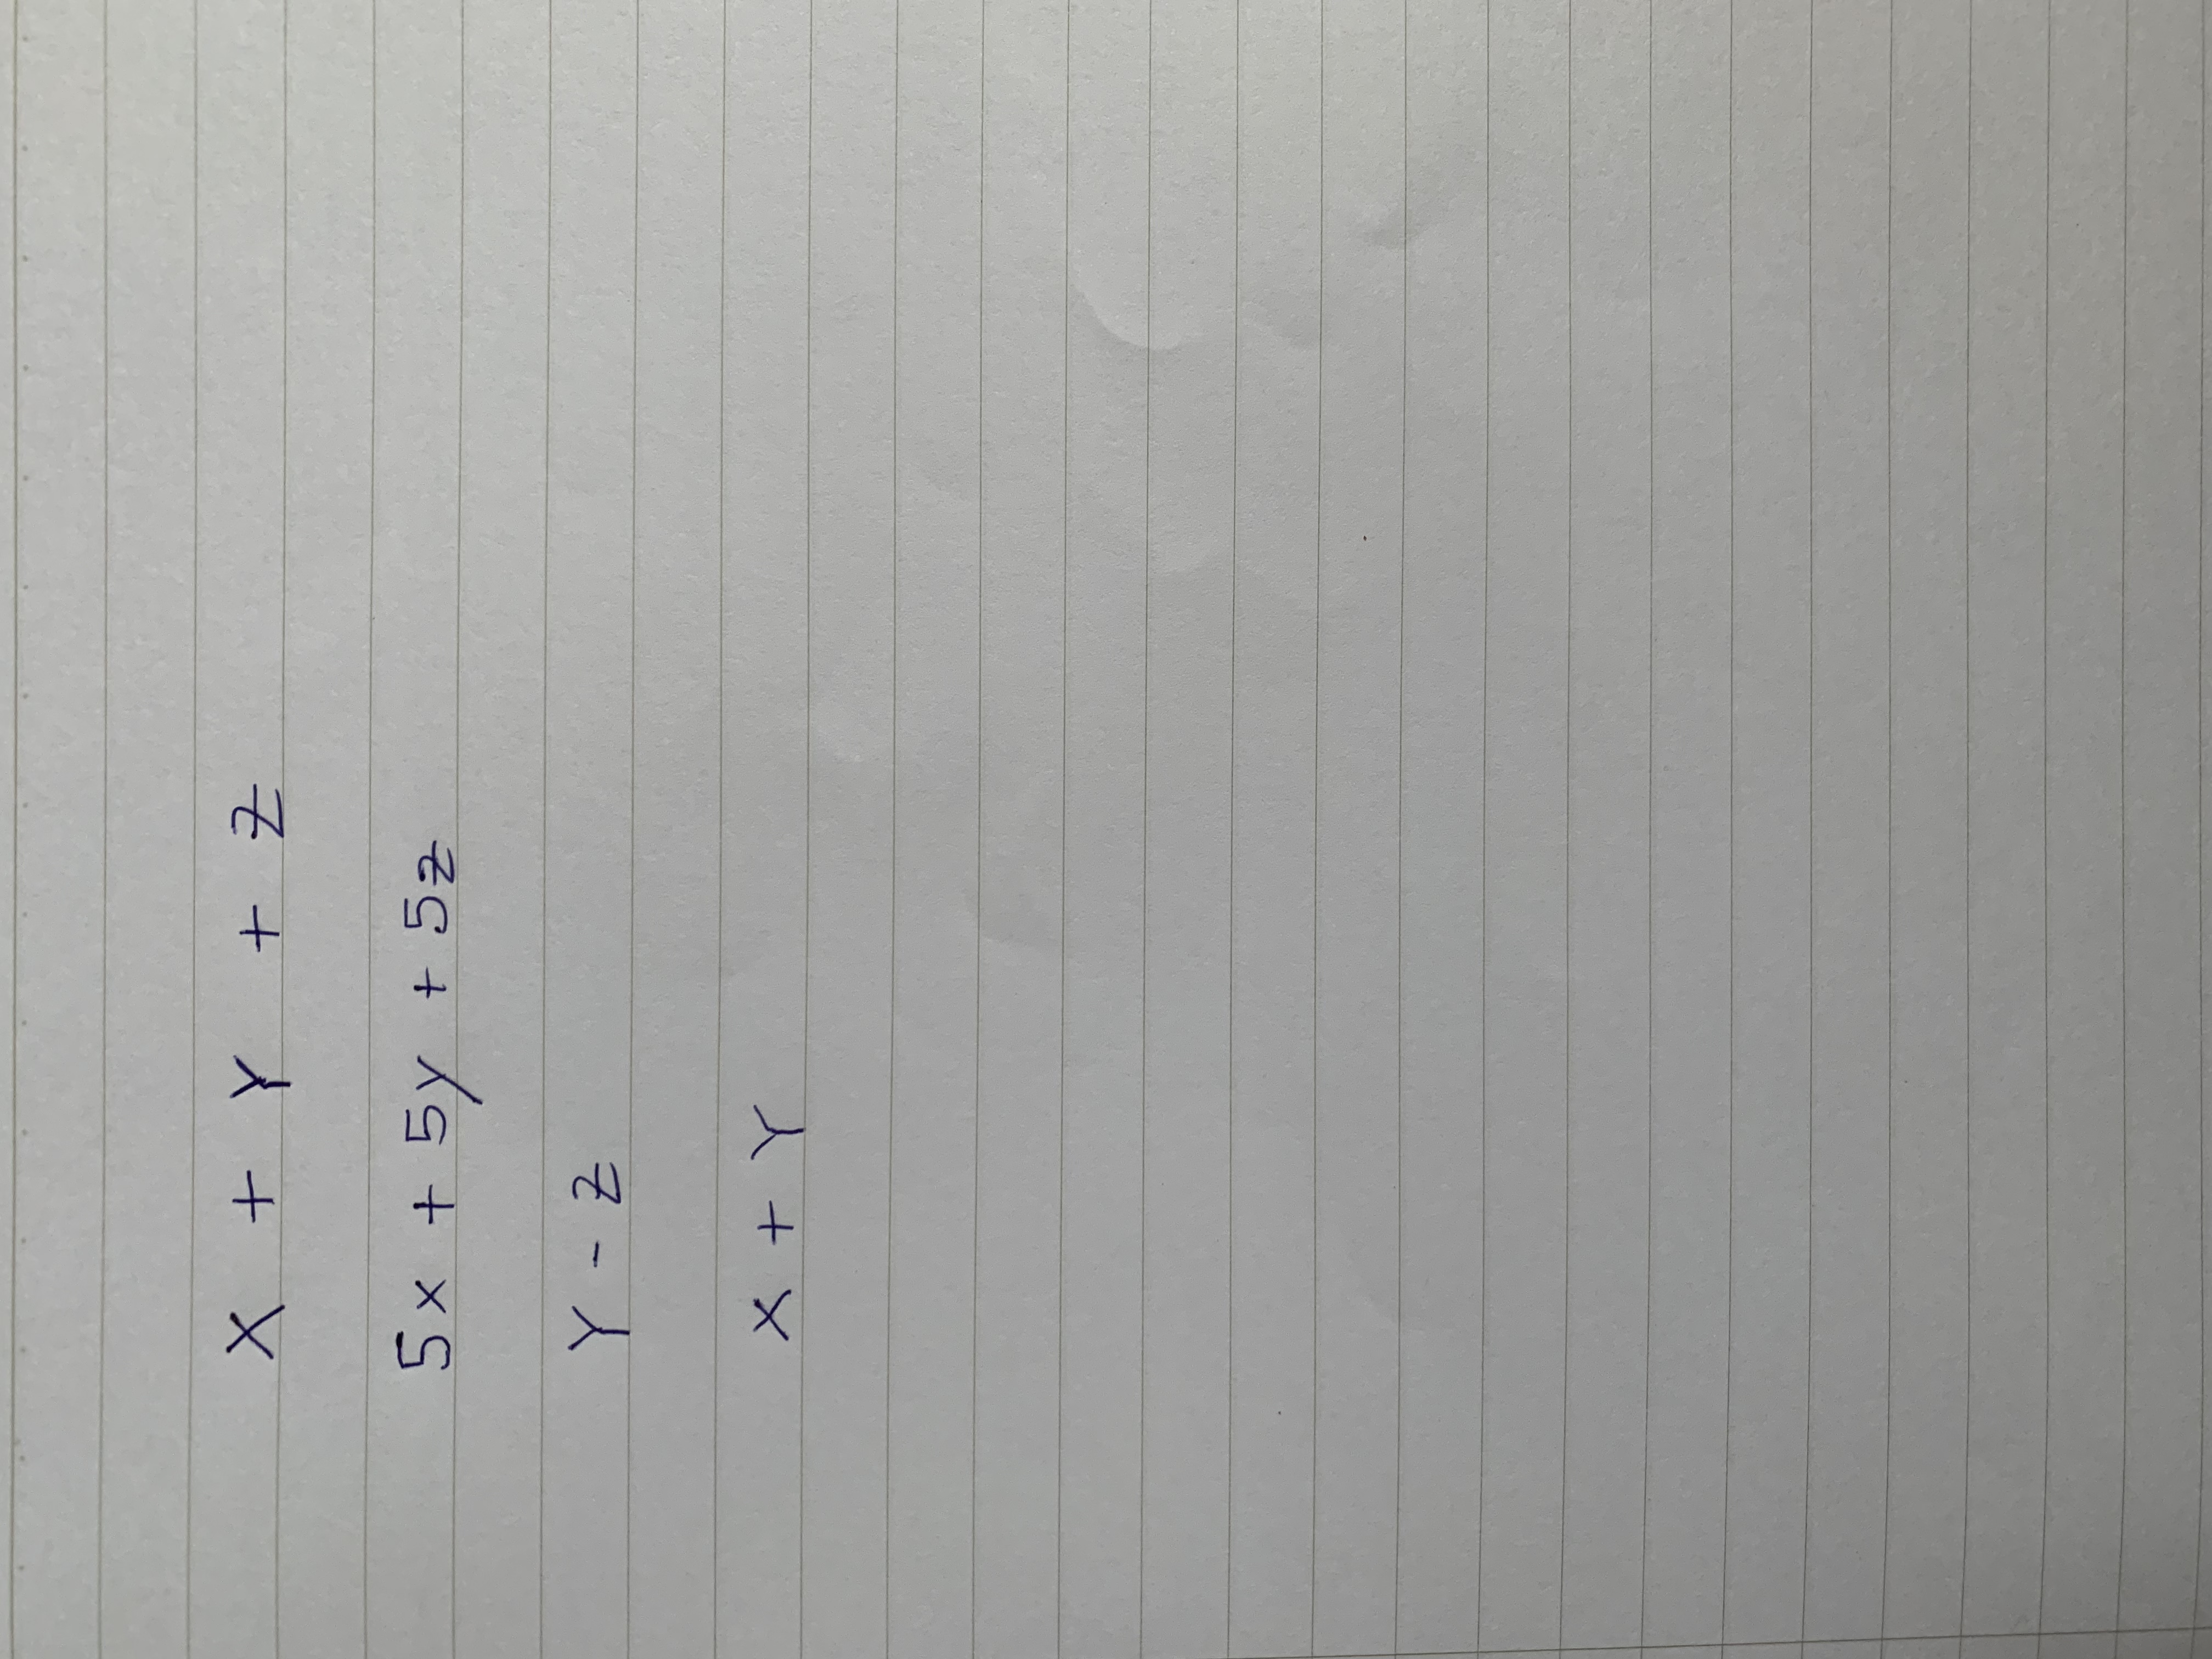 X + Y + Z
5x + 5y + 5z
Y - Z
X + Y